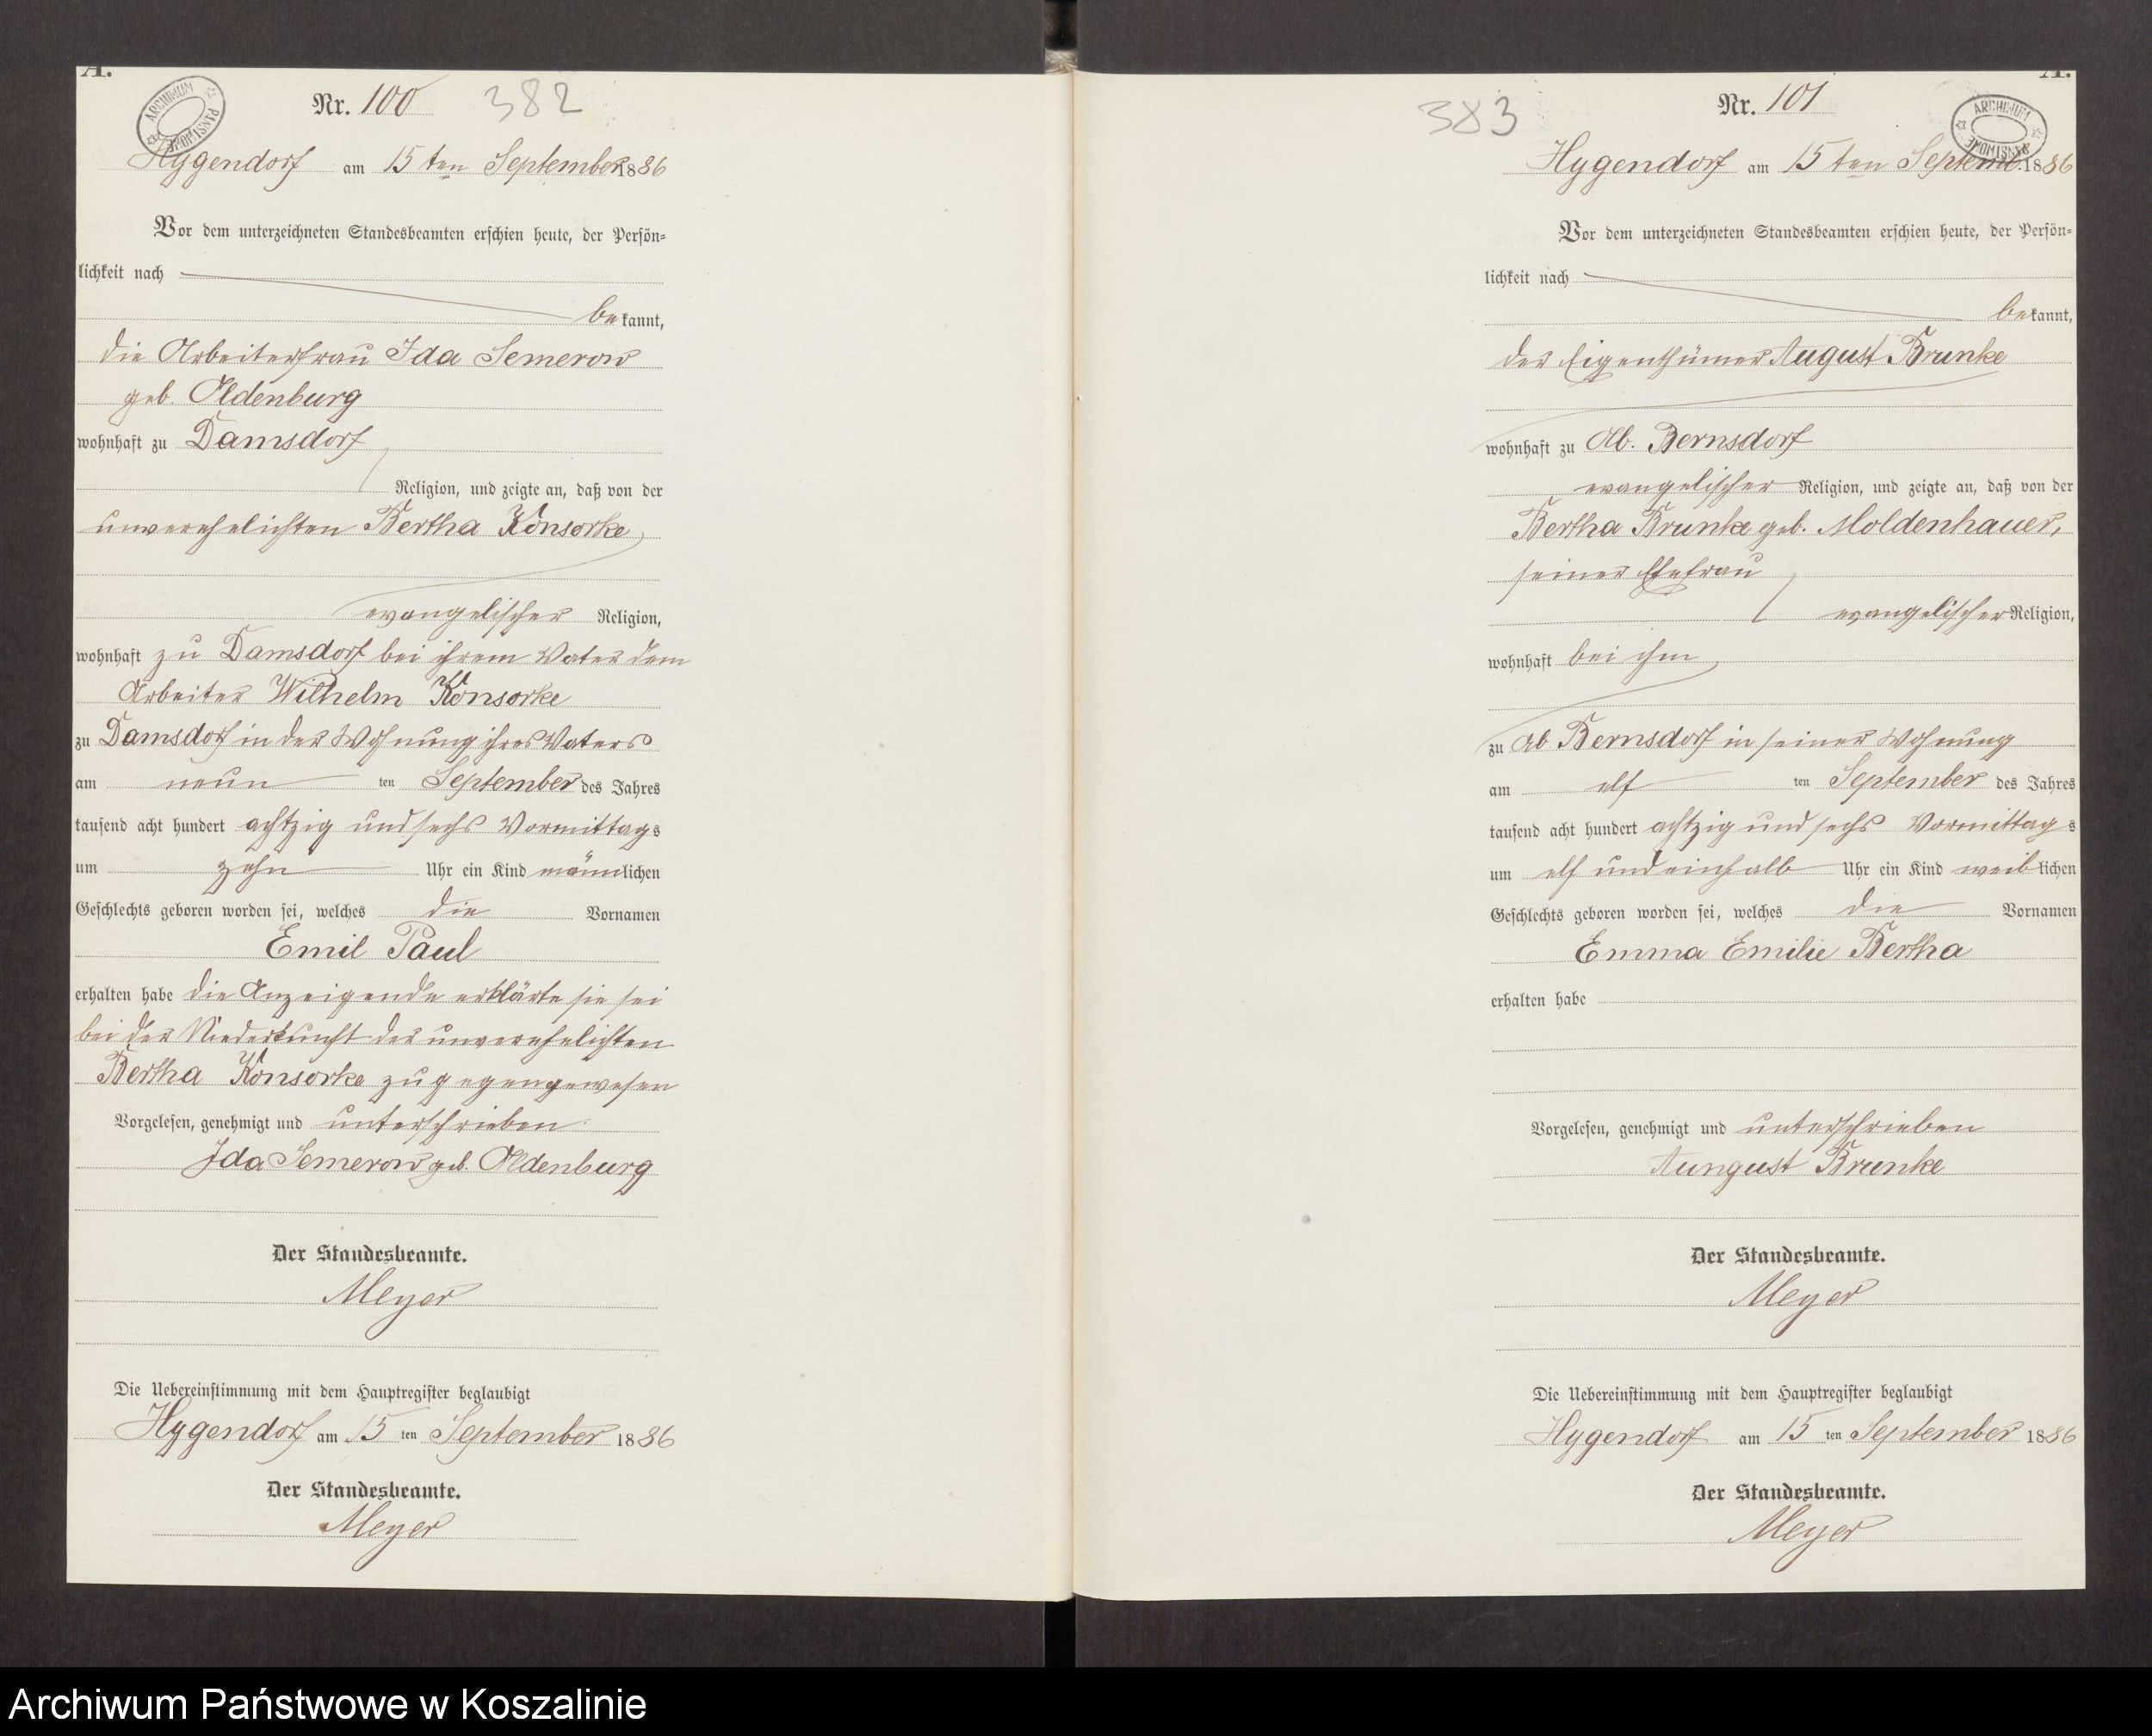 A.
ARCHIWUM PAŃSTWOWE
Nr. 100 382
Hygendorf am 15ten September 1886
Vor dem unterzeichneten Standesbeamten erschien heute, der Persön-
lichkeit nach
bekannt,
die Arbeiterfrau Ida Semerow
geb. Oldenburg
wohnhaft zu Damsdorf
Religion, und zeigte an, daß von der
unverehelichten Bertha Konsorke
evangelischer Religion,
wohnhaft zu Damsdorf bei ihrem Vater dem
Arbeiter Wilhelm Konsorke
zu Damsdorf in der Wohnung ihres Vaters
am neun ten September des Jahres
tausend acht hundert achtzig und sechs Vormittags
um zehn Uhr ein Kind männlichen
Geschlechts geboren worden sei, welches die Vornamen
Emil Paul
erhalten habe die Anzeigende erklärte sie sei
bei der Niederkunft der unverehelichten
Bertha Konsorke zugegengewesen
Vorgelesen, genehmigt und unterschrieben
Ida Semerow geb. Oldenburg
Der Standesbeamte.
Meyer
Die Uebereinstimmung mit dem Hauptregister beglaubigt
Hygendorf am 15 ten September 1886
Der Standesbeamte.
Meyer
A.
ARCHIWUM PAŃSTWOWE
383 Nr. 101
Hygendorf am 15ten Septemb. 1886
Vor dem unterzeichneten Standesbeamten erschien heute, der Persön-
lichkeit nach
bekannt,
der Eigenthümer August Brunke
wohnhaft zu Ab. Bernsdorf
evangelischer Religion, und zeigte an, daß von der
Bertha Brunke geb. Moldenhauer,
seiner Ehefrau
evangelischer Religion,
wohnhaft bei ihm
zu Ab Bernsdorf in seiner Wohnung
am elf ten September des Jahres
tausend acht hundert achtzig und sechs Vormittags
um elf und einhalb Uhr ein Kind weiblichen
Geschlechts geboren worden sei, welches die Vornamen
Emma Emilie Bertha
erhalten habe
Vorgelesen, genehmigt und unterschrieben
Aungust Brunke
Der Standesbeamte.
Meyer
Die Uebereinstimmung mit dem Hauptregister beglaubigt
Hygendorf am 15 ten September 1886
Der Standesbeamte.
Meyer
Archiwum Państwowe w Koszalinie